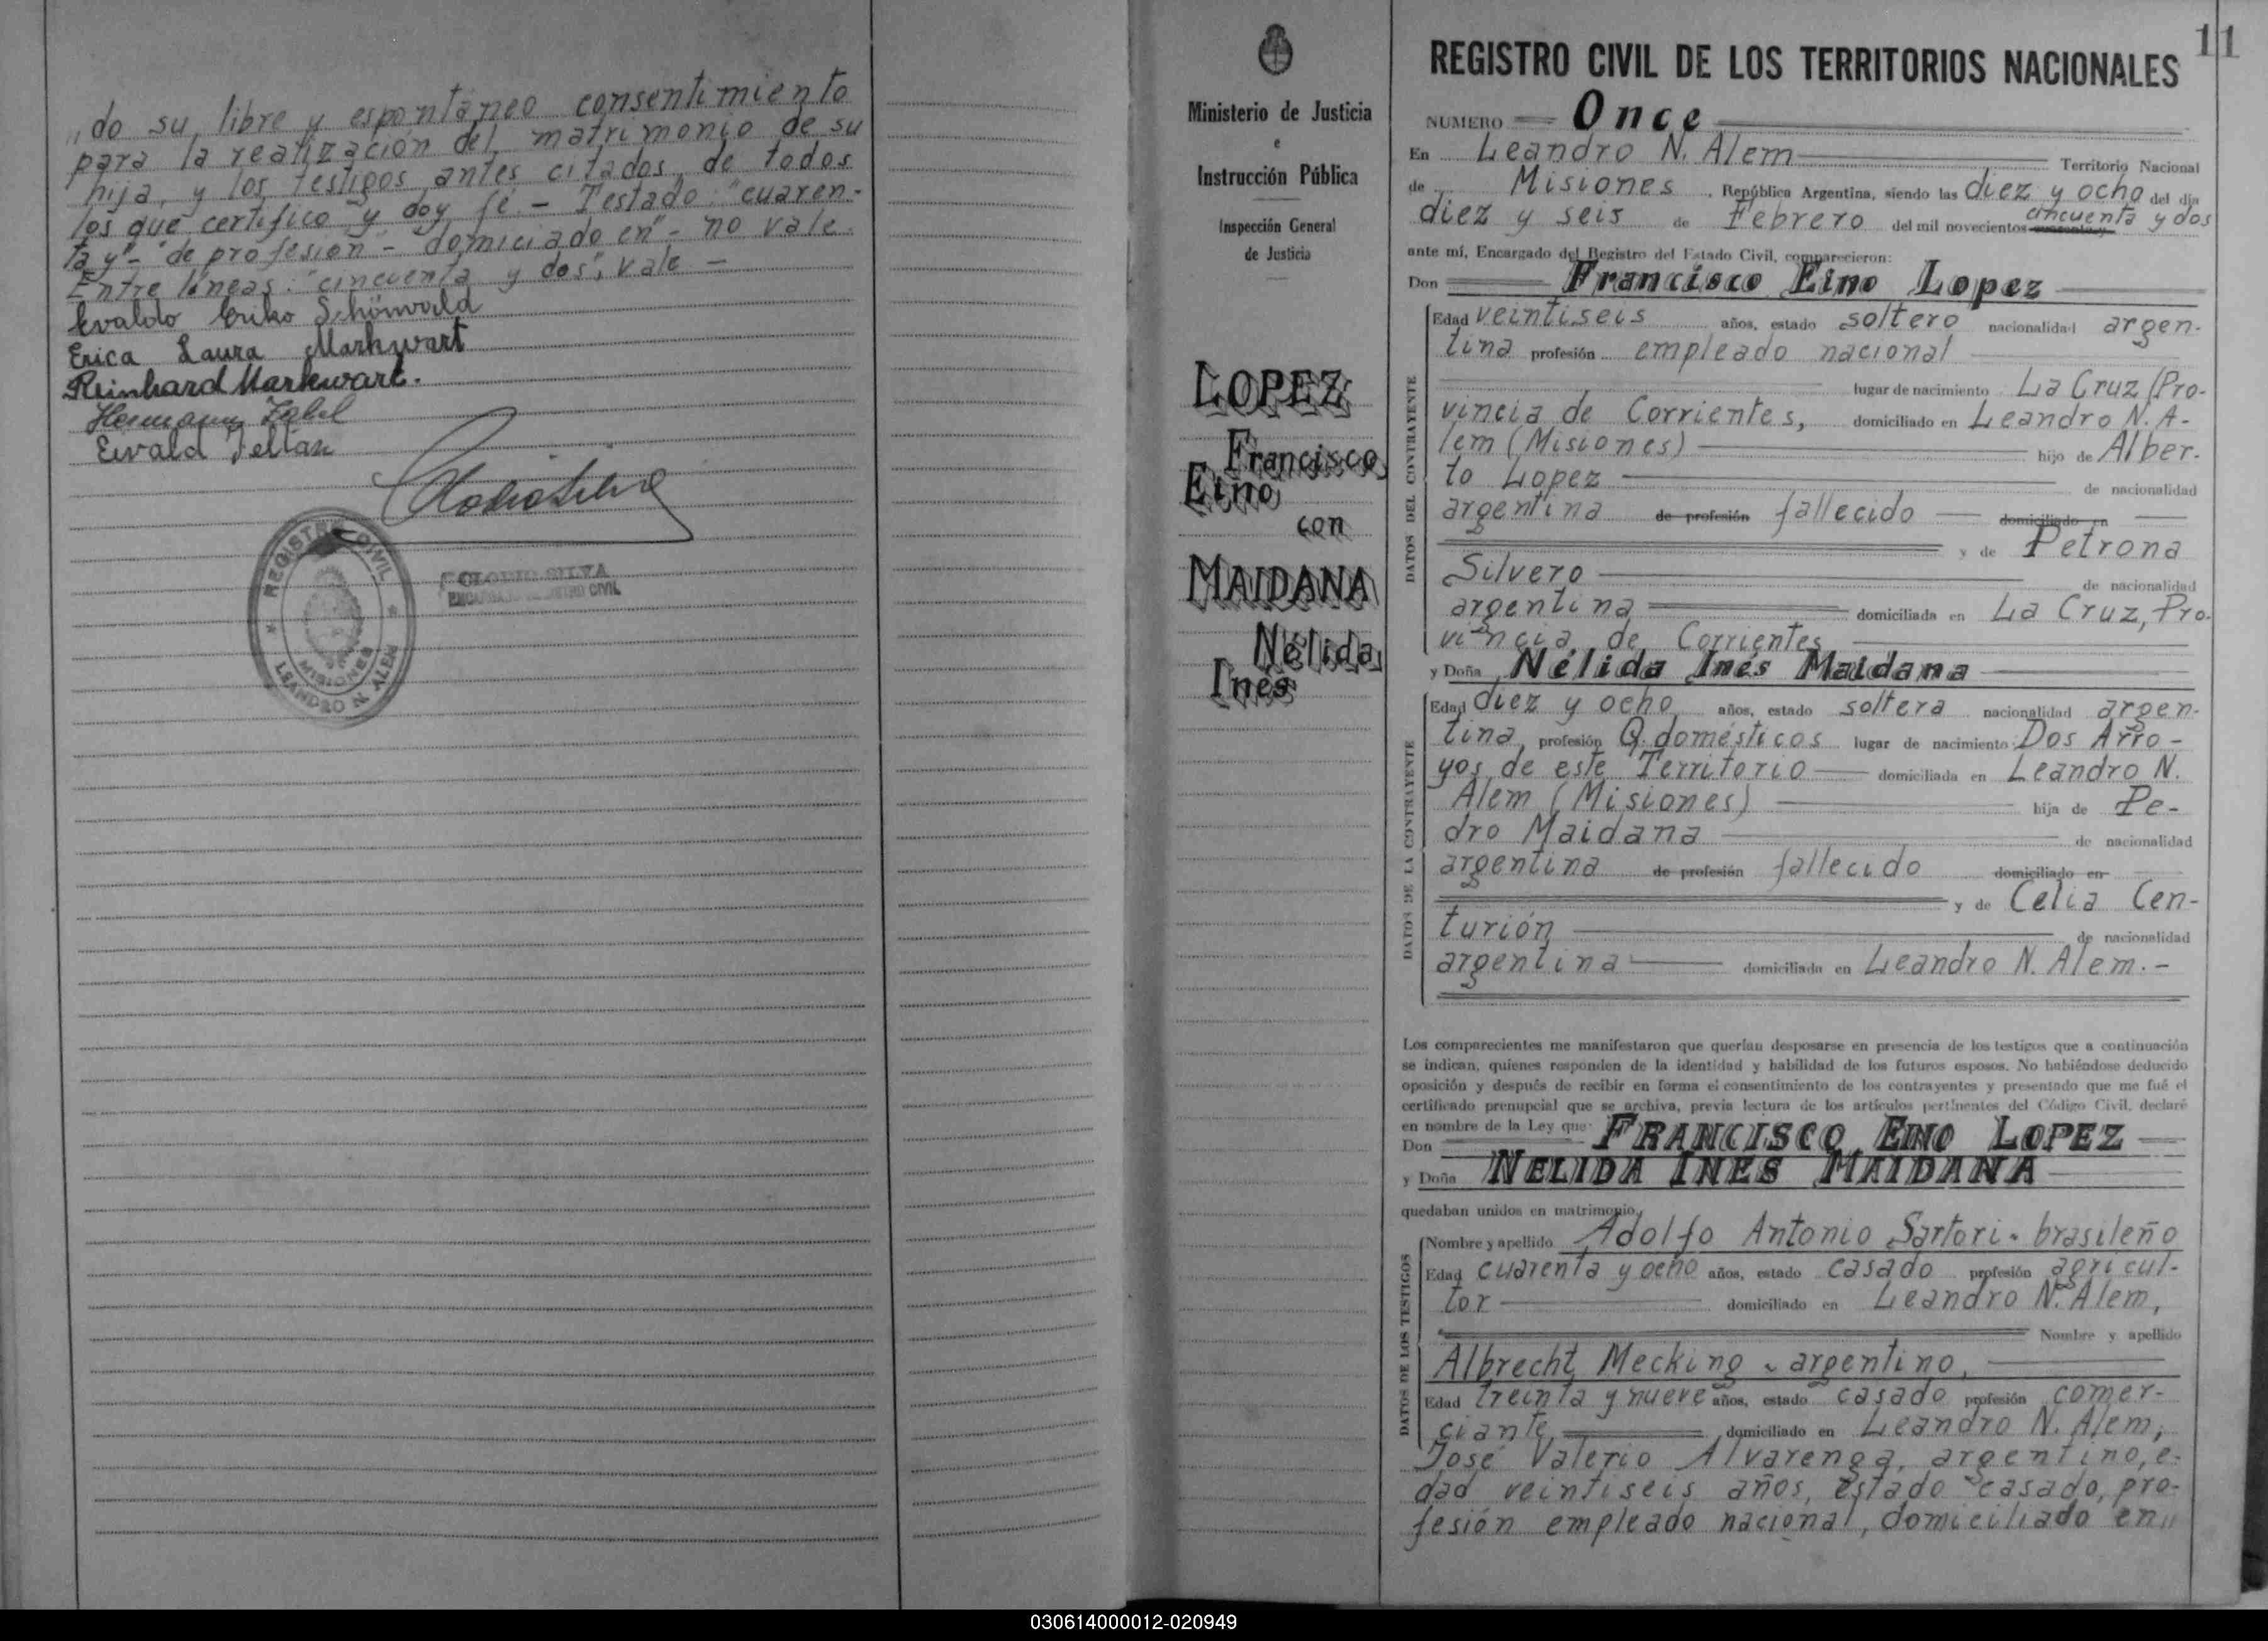 ,,do su libre y espontáneo consentimiento
para la realización del matrimonio de su
hija, y los testigos antes citados, de todos
los que certifico y doy fé.- Testado: "cuaren-
ta y"- "de profesión"- "domiciado en"- no vale.
Entre líneas: "cincuenta y dos", vale -
Evaldo Eriko Schönwald
Erica Laura Markwart
Reinhard Markwart.
Hermann Zabel
Ewald
REGISTRO CIVIL
MISIONES
LEANDRO N. ALEM
CLODIO SILVA
ENCARGADO REGISTRO CIVIL
Ministerio de Justicia
e
Instrucción Pública
Inspección General
de Justicia
LOPEZ
Francisco
Eino
con
MAIDANA
Nélida
Inés
11
REGISTRO CIVIL DE LOS TERRITORIOS NACIONALES
NUMERO Once
En Leandro N. Alem Territorio Nacional
de Misiones, República Argentina, siendo las diez y ocho del día
diez y seis de Febrero del mil novecientos cincuenta y dos
ante mí, Encargado del Registro del Estado Civil, comparecieron:
Don Francisco Eino Lopez
DATOS DEL CONTRAYENTE
Edad veintiseis años, estado soltero nacionalidad argen-
tina profesión empleado nacional
lugar de nacimiento La Cruz (Pro-
vincia de Corrientes, domiciliado en Leandro N. A-
lem (Misiones) hijo de Alber-
to Lopez de nacionalidad
argentina de profesión fallecido domiciliado en
y de Petrona
Silvero de nacionalidad
argentina domiciliada en La Cruz, Pro-
vincia de Corrientes
y Doña Nélida Inés Maidana
DATOS DE LA CONTRAYENTE
Edad diez y ocho años, estado soltera nacionalidad argen-
tina, profesión Q. domésticos lugar de nacimiento Dos Arro-
yos, de este Territorio domiciliada en Leandro N.
Alem (Misiones) hija de Pe-
dro Maidana de nacionalidad
argentina de profesión fallecido domiciliado en
y de Celia Cen-
turión de nacionalidad
argentina domiciliada en Leandro N. Alem.-
Los comparecientes me manifestaron que querían desposarse en presencia de los testigos que a continuación
se indican, quienes responden de la identidad y habilidad de los futuros esposos. No habiéndose deducido
oposición y después de recibir en forma el consentimiento de los contrayentes y presentado que me fué el
certificado prenupcial que se archiva, previa lectura de los artículos pertinentes del Código Civil, declaré
en nombre de la Ley que:
Don FRANCISCO EINO LOPEZ
y Doña NELIDA INES MAIDANA
quedaban unidos en matrimonio.
DATOS DE LOS TESTIGOS
Nombre y apellido Adolfo Antonio Sartori - brasileño
Edad cuarenta y ocho años, estado casado profesión agricul-
tor domiciliado en Leandro N. Alem,
Nombre y apellido
Albrecht Mecking - argentino,
Edad treinta y nueve años, estado casado profesión comer-
ciante, domiciliado en Leandro N. Alem,
José Valerio Alvarenga, argentino, e-
dad veintiseis años, estado casado, pro-
fesión empleado nacional, domiciliado en,,
030614000012-020949